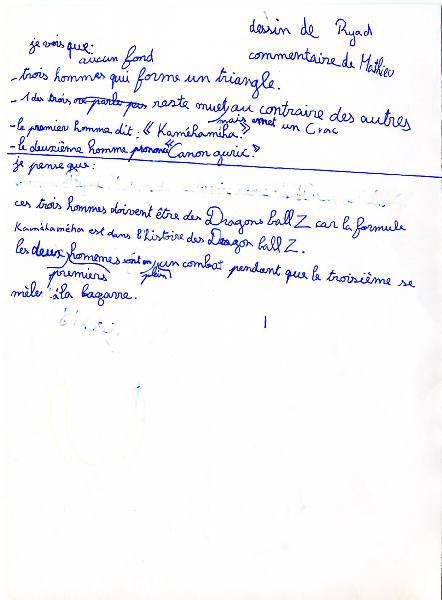 dessin de Ryad
je vois que:
commentaire de Mathieu
aucun fond
- trois hommes qui forme un triangle.
- 1 des trois ne parle pas reste muet, au contraire des autres
mais emet un Crac
- le premier homme dit : « Kaméhaméha »
- le deuxième homme prononce « Canon guric. »
je pense que:
ces trois hommes doivent être des Dragons ball Z car la formule
Kaméhaméha est dans l'histoire des Dragon ball Z.
les deux homemes sont en plein un combat pendant que le troisième se
premiers
mèler à la bagarre.